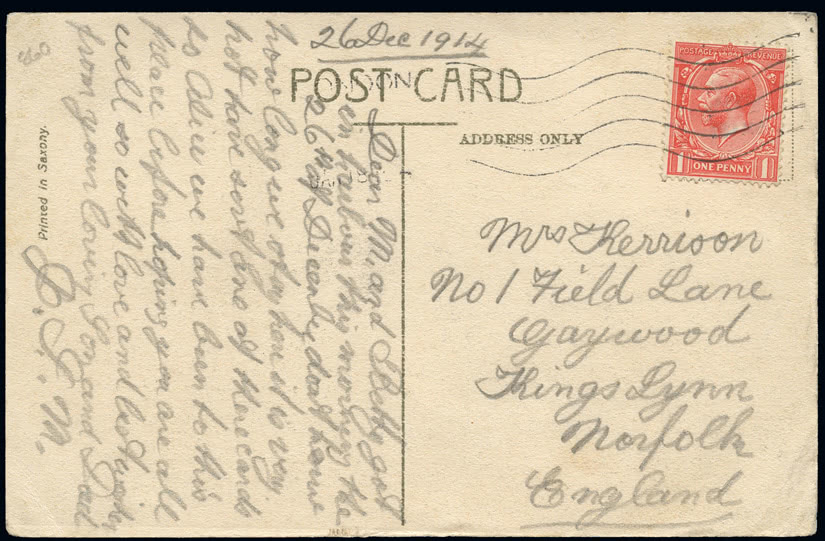 26 Dec 1914
POST CARD
ADDRESS ONLY
POSTAGE REVENUE
1 ONE PENNY 1
Dear M and Betty got
in harbour this morning the
26th of December dont know
how long we stay here it is very
hot have sent one of these cards
to Alice we have been to this
place before hoping you are all
well so with love and best wishes
from your loving Son and Dad
Printed in Saxony.
Mrs Kerrison
No 1 Field Lane
Gaywood
Kings Lynn
Norfolk
England